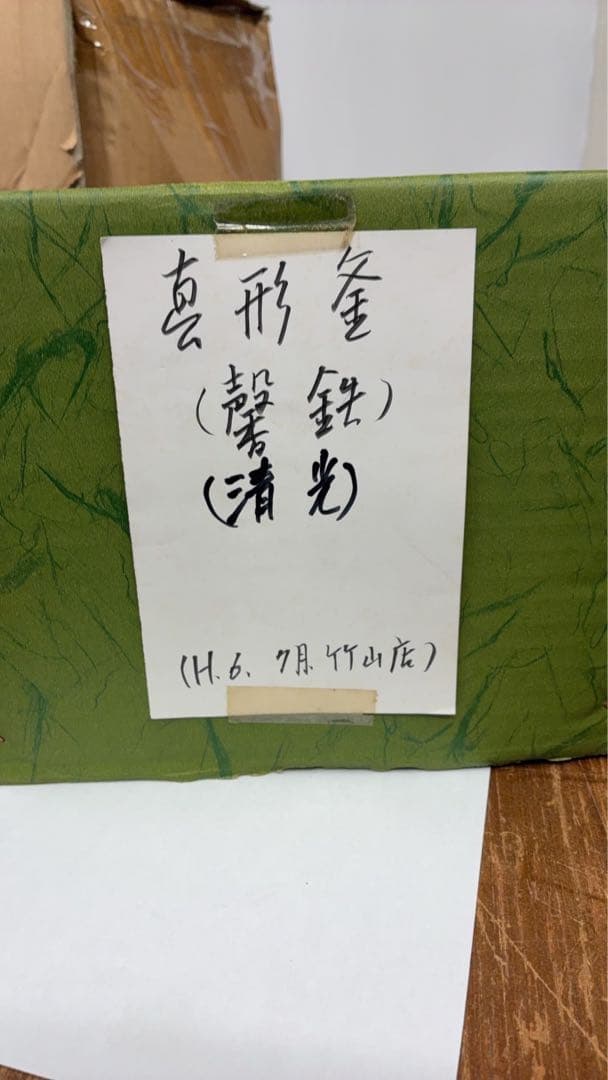 真形釜
(馨鉄)
(清光)
(H.6.7月.竹山店)